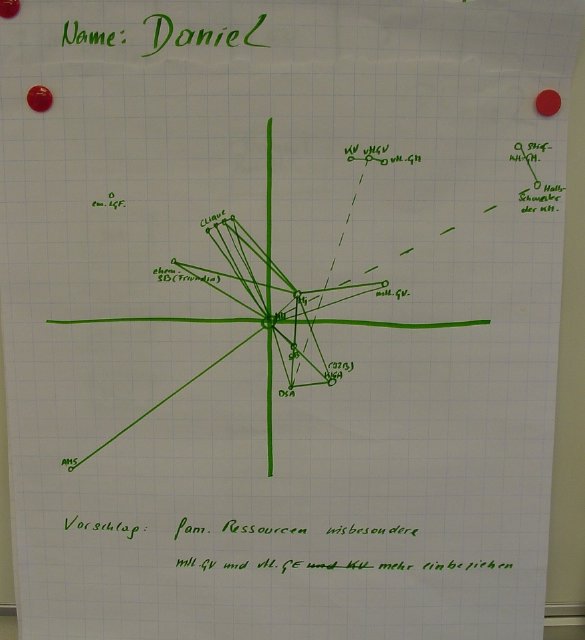 Name: Daniel
KV vM.GV
vM.-GM
Stief-
KM-GM.
Halb-
Schwester
der KM.
em. LGF.
Clique
ehem.
SB (Freundin)
mM.-GV.
KM
SB
(BZB)
DSA
AMS
Vorschlag: fam. Ressourcen insbesondere
mM.GV und vM.GE und KV mehr einbeziehen